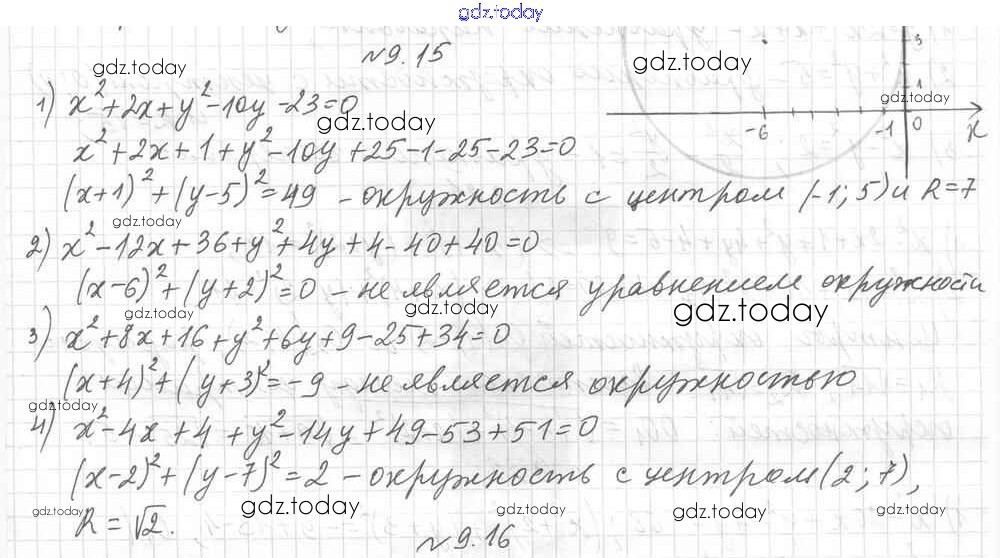 gdz.today
№9.15
1) x²+2x+y²-10y-23=0
x²+2x+1+y²-10y+25-1-25-23=0
(x+1)²+(y-5)²=49 - окружность с центром (-1;5) и R=7
2) x²-12x+36+y²+4y+4-40+40=0
(x-6)²+(y+2)²=0 - не является уравнением окружности
3) x²+8x+16+y²+6y+9-25+34=0
(x+4)²+(y+3)²=-9 - не является окружностью
4) x²-4x+4+y²-14y+49-53+51=0
(x-2)²+(y-7)²=2 - окружность с центром (2;7),
R=√2.
№9.16
5
1
-6
-1
0
x
gdz.today
gdz.today
gdz.today
gdz.today
gdz.today
gdz.today
gdz.today
gdz.today
gdz.today
gdz.today
gdz.today
gdz.today
gdz.today